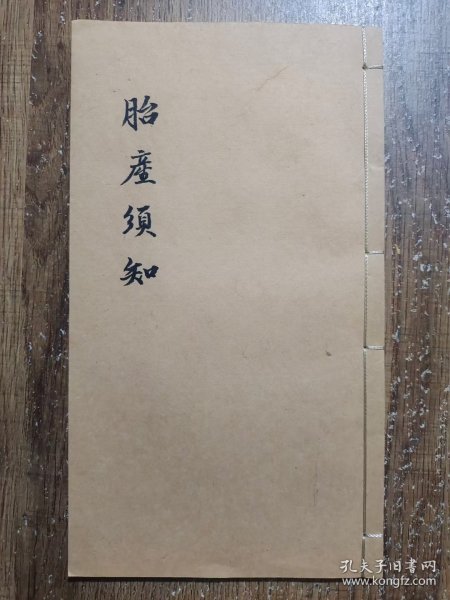 胎產須知
孔夫子旧书网
www.kongfz.com